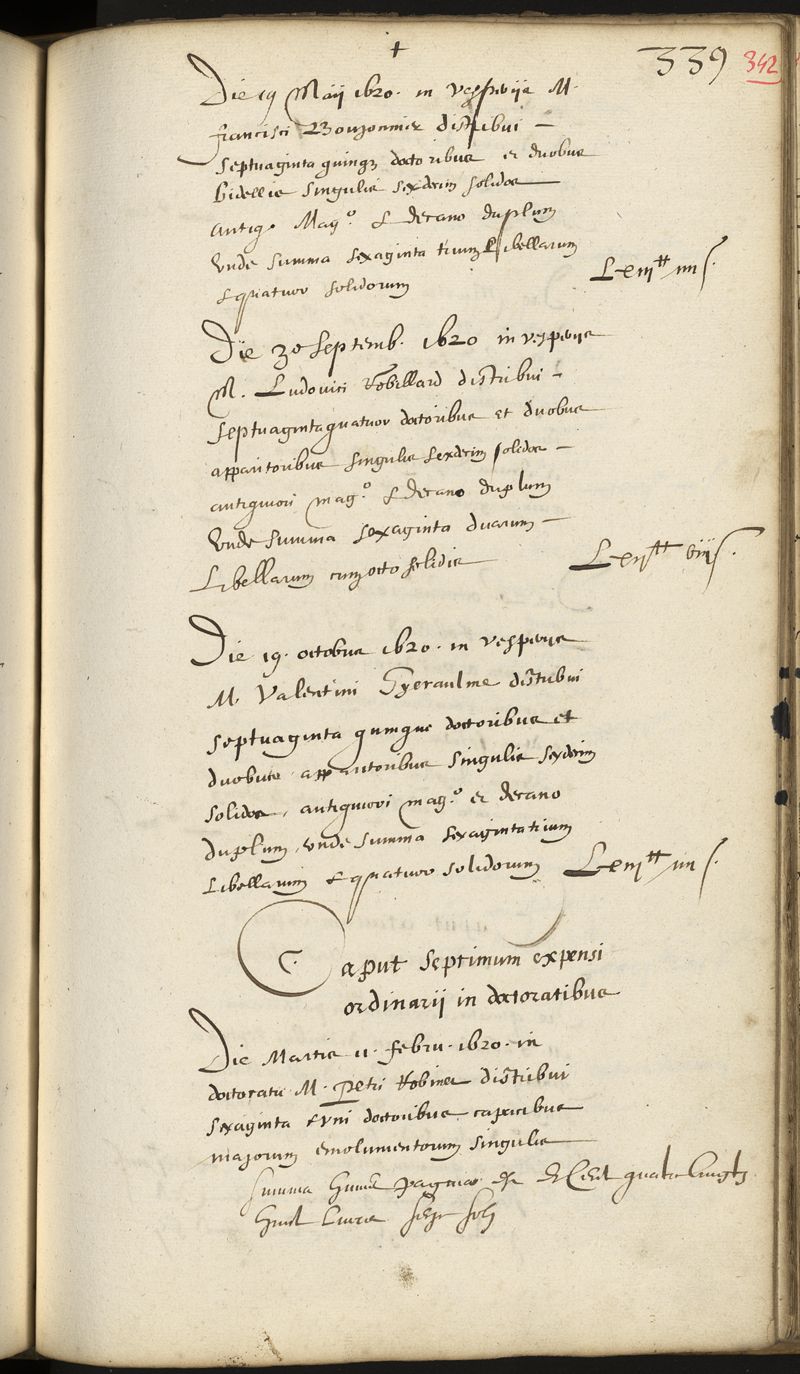 +
339 342
Die 19 Maij 1620. in vesperijs M.
francisci Boujonnier distribui –
septuaginta quinq3 doctoribus et duobus
bidellis singulis sexdecim solidos
antiq. Mag.o & decano duplum
vnde summa sexaginta trium Libellarum
& quatuor solidorum
Lxiij tt iiij s.
Die 30 septemb. 1620 in vesperijs
M. Ludovici Robillard distribui –
septuaginta quatuor doctoribus et duobus
apparitoribus singulis sexdecim solidos –
antiquiori mag.o & decano duplum
vnde summa sexaginta duarum –
Libellarum cum octo solidis
Lxij tt viij s.
Die 19. octobris 1620. in vesperijs
M. Valentini Hyeraulme distribui
septuaginta quinque doctoribus et
duobus apparitoribus singulis sexdecim
solidos, antiquiori mag.o et decano
duplum, vnde summa sexaginta trium
Libellarum & quatuor solidorum
Lxiij tt iiij s.
Caput septimum expensi
ordinarij in doctoratibus
Die Martis 11. febru. 1620. in
doctoratu M. Petri Robinet distribui
sexaginta & vni doctoribus capacibus
majorum emolumentorum singulis
summa huius paginae est de Cent quatre vingtz
huict Livres seze solz